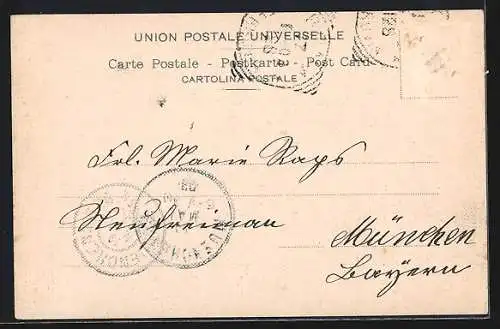 UNION POSTALE UNIVERSELLE
Carte Postale - Postkarte - Post Card
CARTOLINA POSTALE
Frl. Marie Raps
München
Bayern